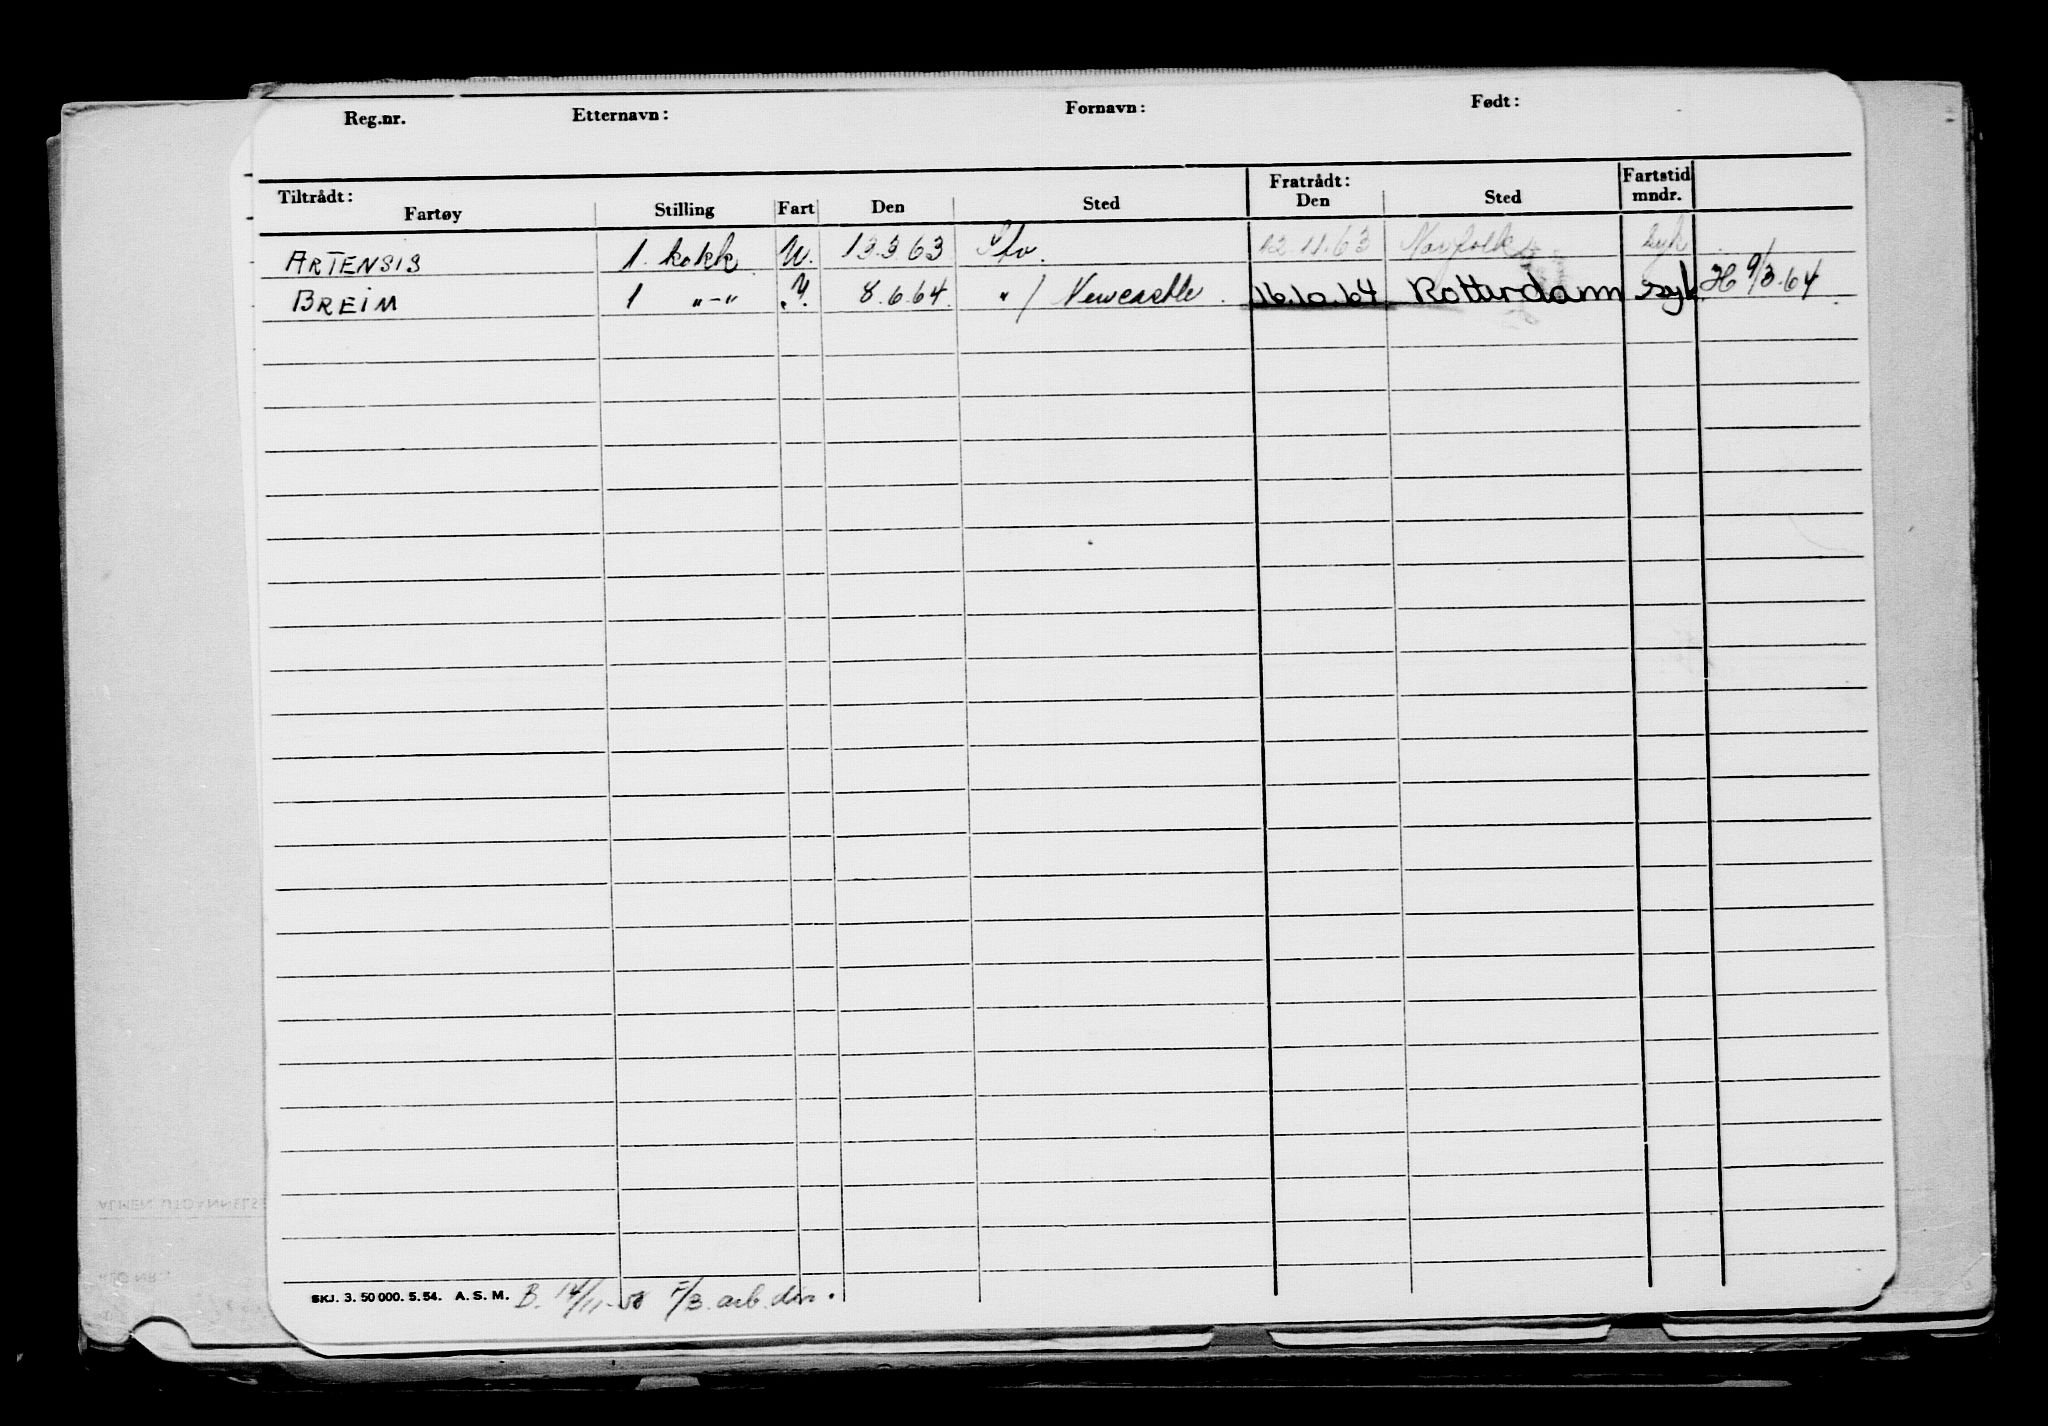 Reg.nr. Etternavn: Fornavn: Født:
Tiltrådt: Fratrådt: Fartstid
Fartøy Stilling Fart Den Sted Den Sted mndr.
ARTENSIS 1. kokk U. 13.3.63 12.11.63 Norfolk syk
BREIM 1 "-" 8.6.64 " / Newcastle 16.10.64 Rotterdam syk H 9/3.64
SKJ. 3. 50 000. 5. 54. A. S. M. B. 14/11-58 F/B. arb.
ALMEN UTDANNELSE